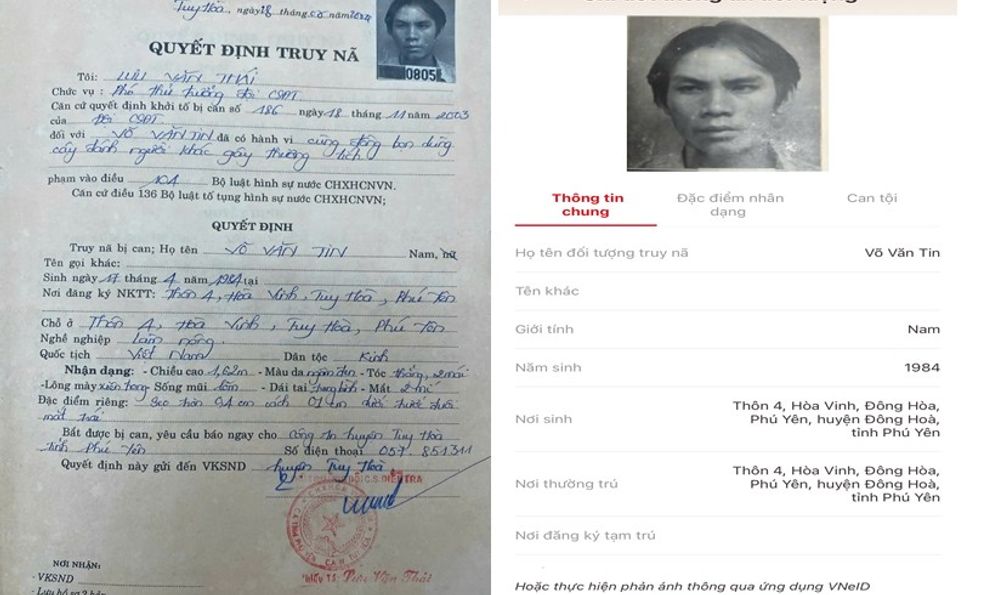 Tuy Hoà, ngày 18 tháng
QUYẾT ĐỊNH TRUY NÃ
0805
Tôi: LƯU VĂN THÁI
Chức vụ : Phó thủ trưởng đội CSĐT
Căn cứ quyết định khởi tố bị can số 186 ngày 18 tháng 11 năm 2003
của Đội CSĐT
đối với VÕ VĂN TIN đã có hành vi cùng đồng bọn dùng
cây đánh người khác gây thương tích
phạm vào điều 104 Bộ luật hình sự nước CHXHCNVN.
Căn cứ điều 136 Bộ luật tố tụng hình sự nước CHXHCNVN;
QUYẾT ĐỊNH
Truy nã bị can; Họ tên VÕ VĂN TIN Nam, nữ
Tên gọi khác:
Sinh ngày 17 tháng 4 năm 1984 tại
Nơi đăng ký NKTT: Thôn 4, Hoà Vinh, Tuy Hoà, Phú Yên
Chỗ ở Thôn 4, Hoà Vinh, Tuy Hoà, Phú Yên
Nghề nghiệp làm nông
Quốc tịch Việt Nam Dân tộc Kinh
Nhận dạng: - Chiều cao 1,62m - Màu da ngăn đen - Tóc thẳng, 2 mái
-Lông mày xiên ngang Sống mũi lõm - Dái tai trung bình - Mắt 2 mí
Đặc điểm riêng: Sẹo tròn 0,4 cm cách 01 cm dưới trước đuôi
mắt trái
Bắt được bị can, yêu cầu báo ngay cho công an huyện Tuy Hoà
tỉnh Phú Yên Số điện thoại 057. 851311
Quyết định này gửi đến VKSND huyện Tuy Hoà
C.S ĐIỀU TRA
Lưu Văn Thái
NƠI NHẬN:
- VKSND
- Lưu hồ sơ 2 bản
Thông tin chung
Đặc điểm nhân dạng
Căn tội
Họ tên đối tượng truy nã Võ Văn Tin
Tên khác
Giới tính Nam
Năm sinh 1984
Nơi sinh Thôn 4, Hòa Vinh, Đông Hòa,
Phú Yên, huyện Đông Hoà,
tỉnh Phú Yên
Nơi thường trú Thôn 4, Hòa Vinh, Đông Hòa,
Phú Yên, huyện Đông Hoà,
tỉnh Phú Yên
Nơi đăng ký tạm trú
Hoặc thực hiện phản ánh thông qua ứng dụng VNeID